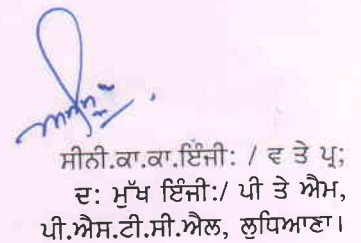 ਸੀਨੀ.ਕਾ.ਕਾ.ਇੰਜੀ: / ਵ ਤੇ ਪ੍ਰ;
ਦ: ਮੁੱਖ ਇੰਜੀ:/ ਪੀ ਤੇ ਐਮ,
ਪੀ.ਐਸ.ਟੀ.ਸੀ.ਐਲ, ਲੁਧਿਆਣਾ।